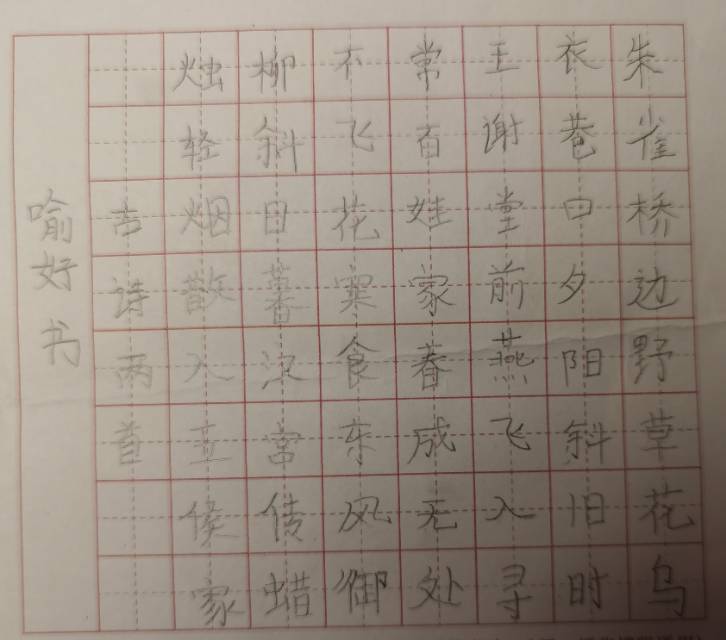 朱雀桥边野草花乌
衣巷口夕阳斜旧时
王谢堂前燕飞入寻
常百娃家春成无处
不飞花寒食东风御
柳斜日暮汉宫传蜡
烛轻烟散入五侯家
古诗两首
喻好书